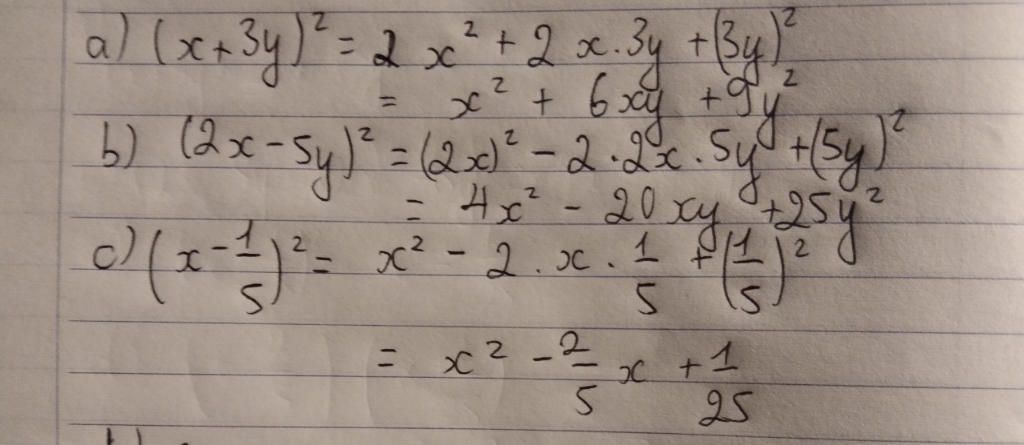 a) (x+3y)² = 2 x² + 2 x.3y + (3y)²
= x² + 6xy + 9y²
b) (2x-5y)² = (2x)² - 2.2x.5y + (5y)²
= 4x² - 20xy + 25y²
c) (x-1/5)² = x² - 2.x.1/5 + (1/5)²
= x² - 2/5 x + 1/25